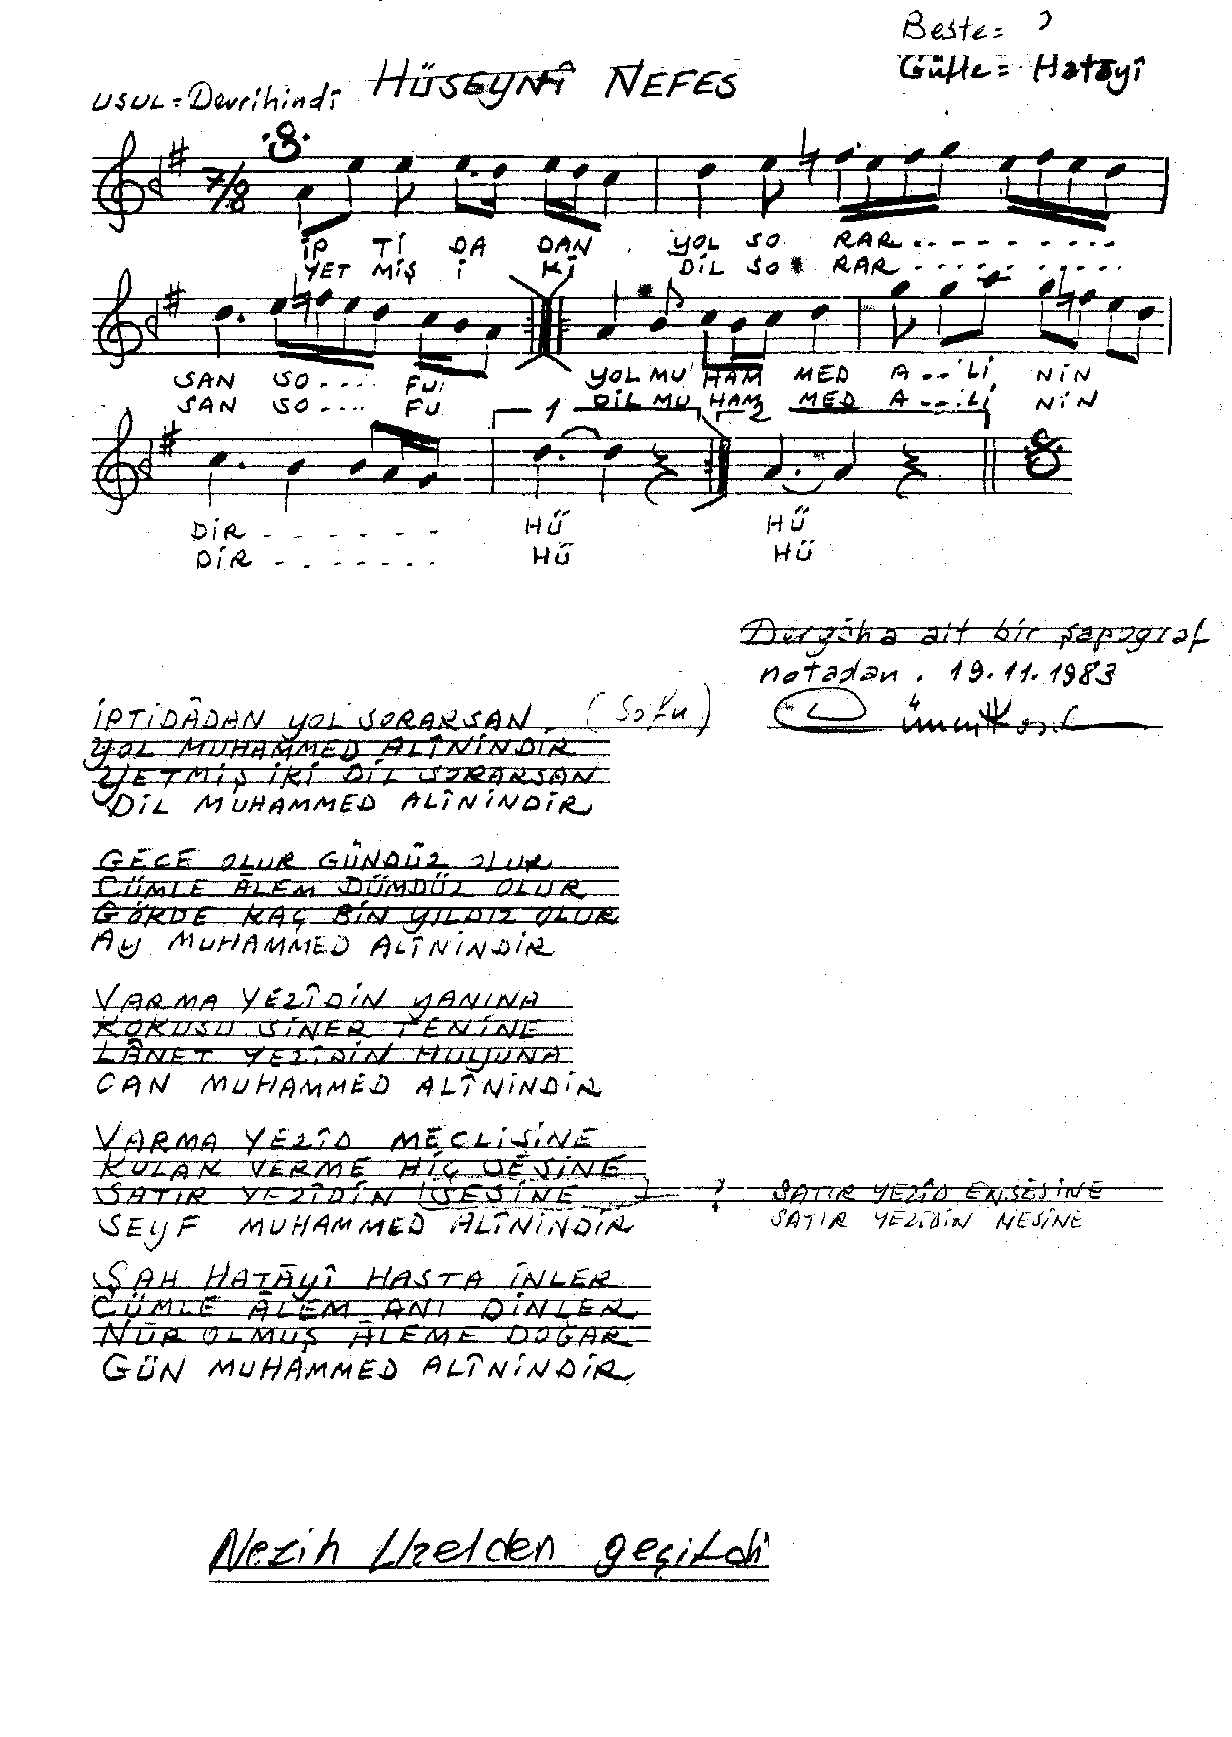 Beste= ?
Güfte= Hatâyî
USUL=Devrihindî HÜSEYNÎ NEFES
7/8
İP Tİ DA DAN . YOL SO RAR - - - - - - - -
YET MİŞ İ Kİ DİL SO RAR - - - - - - - -
SAN SO - - - - FU YOL MU HAM MED A - - Lİ NİN
SAN SO - - - - FU DİL MU HAM MED A - - Lİ NİN
1 2
DİR - - - - - - - HÛ HÛ
DİR - - - - - - - HÛ HÛ
Dergâha ait bir şapograf
notadan. 19.11.1983
İPTİDÂDAN YOL SORARSAN (Sofu)
YOL MUHAMMED ALÎNİNDİR
YETMİŞ İKİ DİL SORARSAN
DİL MUHAMMED ALÎNİNDİR
GECE OLUR GÜNDÜZ OLUR
CÜMLE ÂLEM DÜMDÜZ OLUR
GÖKDE KAÇ BİN YILDIZ OLUR
AY MUHAMMED ALÎNİNDİR
VARMA YEZÎDİN YANINA
KOKUSU SİNER TENİNE
LÂNET YEZÎDİN HUYUNA
CAN MUHAMMED ALÎNİNDİR
VARMA YEZÎD MECLİSİNE
KULAK VERME HİÇ SESİNE
SATIR YEZÎDİN SESİNE ? SATIR YEZÎD ENSESİNE
SEYF MUHAMMED ALÎNİNDİR SATIR YEZÎDİN NESİNE
ŞAH HATÂYÎ HASTA İNLER
CÜMLE ÂLEM ANI DİNLER
NÛR OLMUŞ ÂLEME DOĞAR
GÜN MUHAMMED ALÎNİNDİR
Nezih Uzelden geçildi